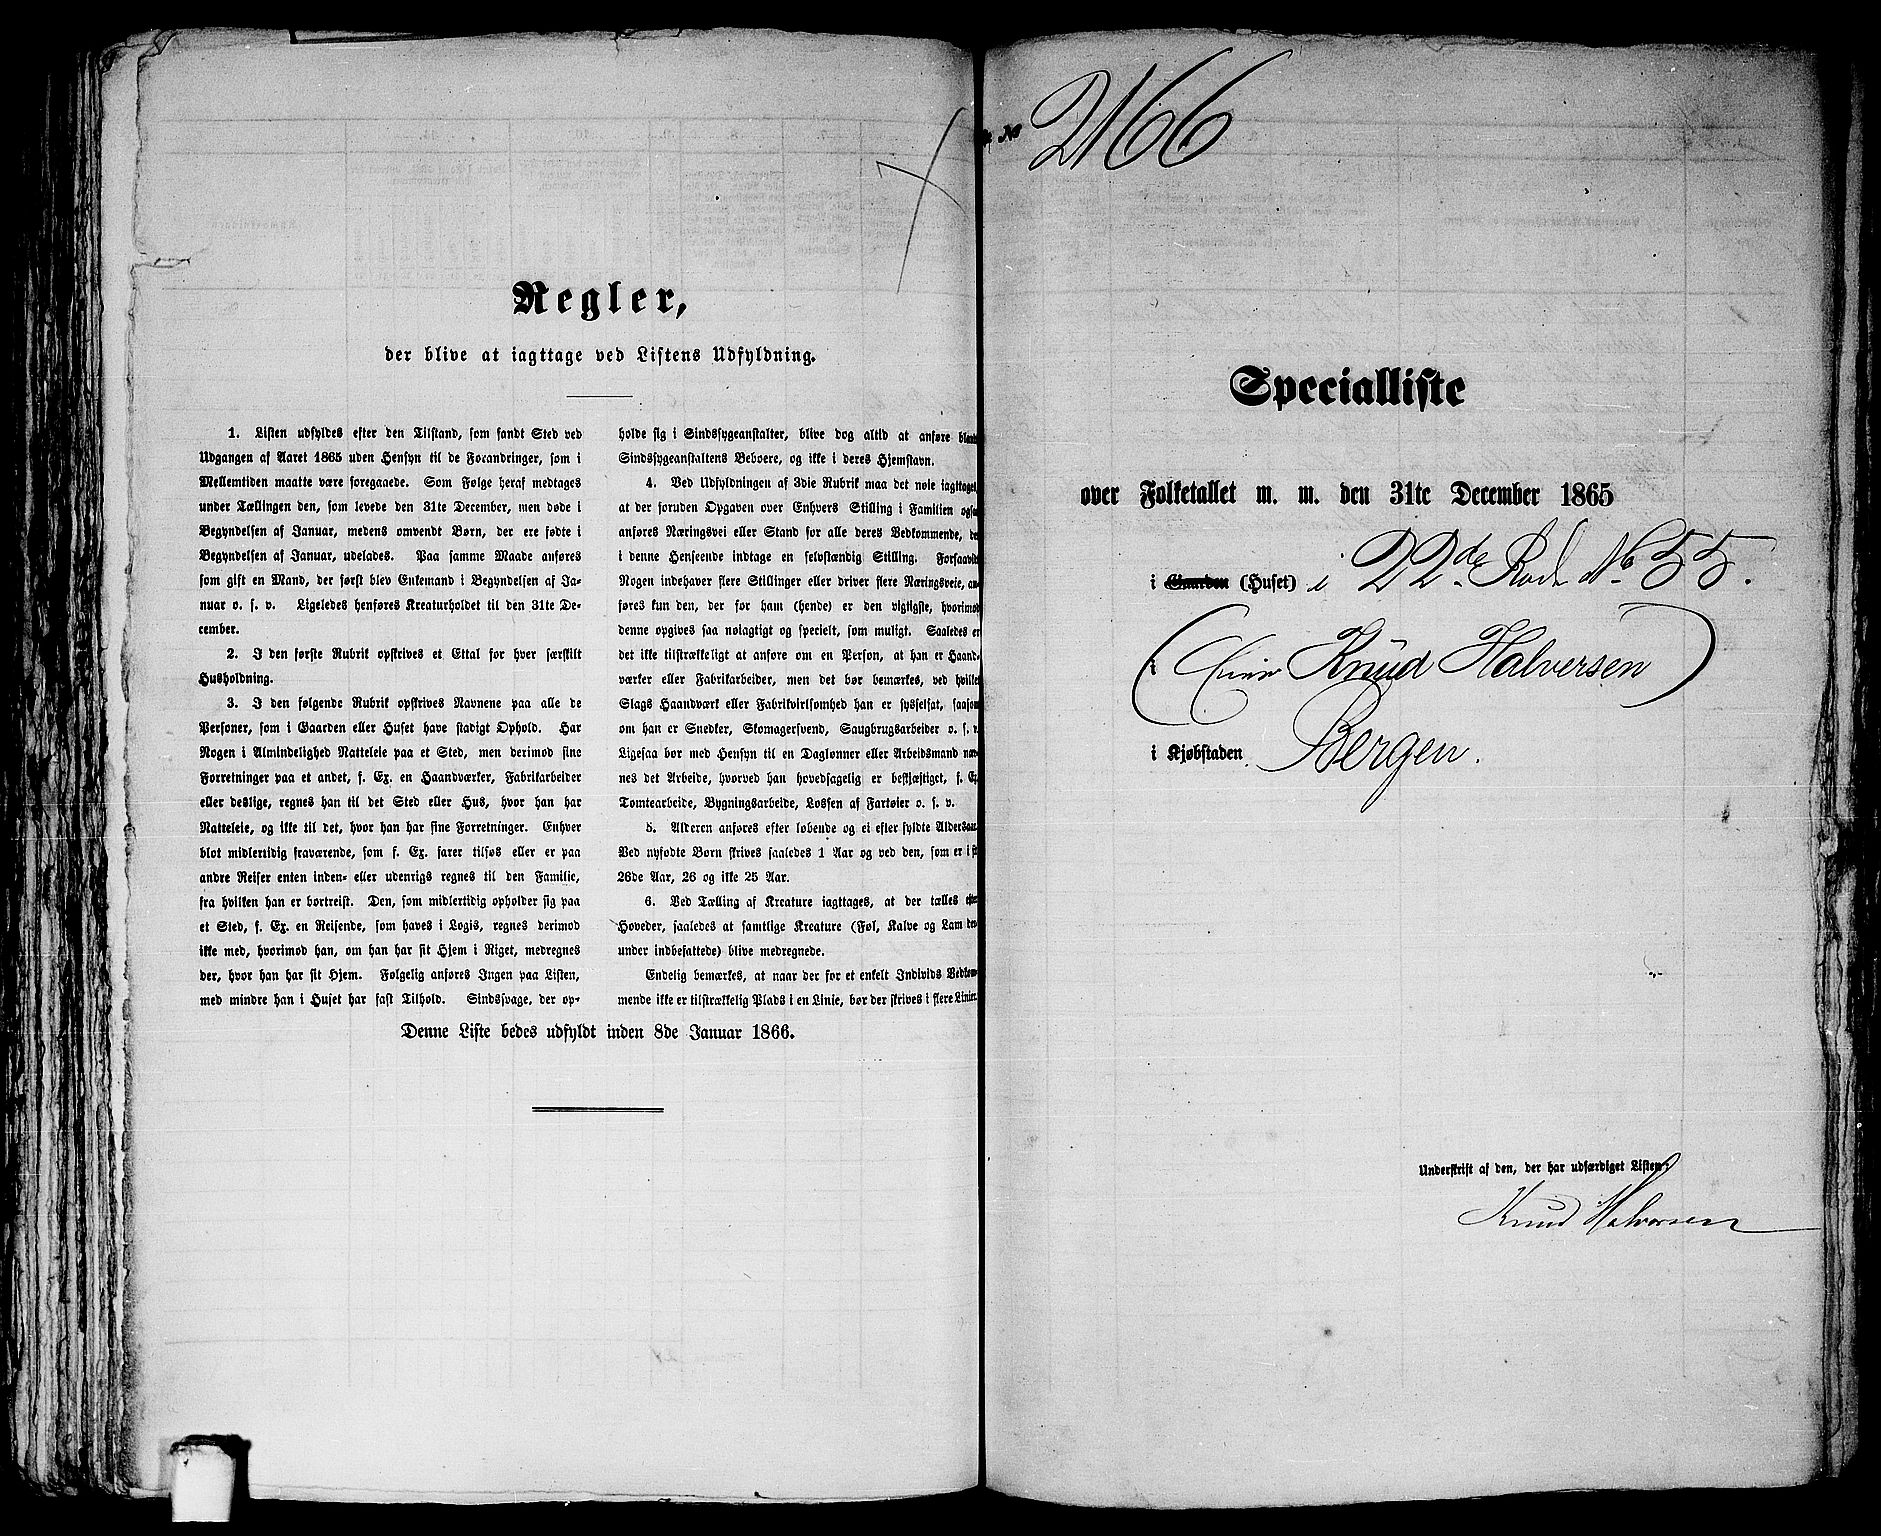 Regler,
der blive at iagttage ved Listens Udfyldning.
1. Listen udfyldes efter den Tilstand, som fandt Sted ved
Udgangen af Aaret 1865 uden Hensyn til de Forandringer, som i
Mellemtiden maatte være foregaaede. Som Følge heraf medtages
under Tællingen den, som levede den 31te December, men døde i
Begyndelsen af Januar, medens omvendt Børn, der ere fødte i
Begyndelsen af Januar, udelades. Paa samme Maade anføres
som gift en Mand, der først blev Enkemand i Begyndelsen af Ja-
nuar o. s. v. Ligeledes henføres Kreaturholdet til den 31te De-
cember.
2. I den første Rubrik opskrives et Ettal for hver særskilt
Husholdning.
3. I den følgende Rubrik opskrives Navnene paa alle de
Personer, som i Gaarden eller Huset have stadigt Ophold. Har
Nogen i Almindelighed Natteleie paa et Sted, men derimod sine
Forretninger paa et andet, f. Ex. en Haandværker, Fabrikarbeider
eller deslige, regnes han til det Sted eller Hus, hvor han har
Natteleie, og ikke til det, hvor han har sine Forretninger. Enhver
blot midlertidig fraværende, som f. Ex. farer tilsøs eller er paa
andre Reiser enten inden- eller udenrigs regnes til den Familie,
fra hvilken han er bortreist. Den, som midlertidig opholder sig paa
et Sted, f. Ex. en Reisende, som haves i Logis, regnes derimod
ikke med, hvorimod han, om han har sit Hjem i Riget, medregnes
der, hvor han har sit Hjem. Følgelig anføres Ingen paa Listen,
med mindre han i Huset har fast Tilhold. Sindssvage, der op-
holde sig i Sindssygeanstalter, blive dog altid at anføre blandt
Sindssygeanstaltens Beboere, og ikke i deres Hjemstavn.
4. Ved Udfyldningen af 3die Rubrik maa det nøie iagttages,
at der foruden Opgaven over Enhvers Stilling i Familien ogsaa
anføres Næringsvei eller Stand for alle deres Vedkommende, der
i denne Henseende indtage en selvstændig Stilling. Forsaavidt
Nogen indehaver flere Stillinger eller driver flere Næringsveie, an-
føres kun den, der for ham (hende) er den vigtigste, hvorimod
denne opgives saa nøiagtigt og specielt, som muligt. Saaledes er
det ikke tilstrækkeligt at anføre om en Person, at han er Haand-
værker eller Fabrikarbeider, men det bør bemærkes, ved hvilket
Slags Haandværk eller Fabrikvirksomhed han er sysselsat, saasom
om han er Snedker, Skomagersvend, Saugbrugsarbeider o. s. v.
Ligesaa bør med Hensyn til en Dagløнner eller Arbeidsmand næv-
nes det Arbeide, hvorved han hovedsagelig er beskjæftiget, f. Ex.
Tomtearbeide, Bygningsarbeide, Lossen af Fartøier o. s. v.
5. Alderen anføres efter løbende og ei efter fyldte Aldersaar.
Ved nyfødte Børn skrives saaledes 1 Aar og ved den, som er i sit
26de Aar, 26 og ikke 25 Aar.
6. Ved Tælling af Kreature iagttages, at der tælles efter
Hoveder, saaledes at samtlige Kreature (Føl, Kalve og Lam der-
under indbefattede) blive medregnede.
Endelig bemærkes, at naar der for et enkelt Individs Vedkom-
mende ikke er tilstrækkelig Plads i en Linie, bør der skrives i flere Linier.
Denne Liste bedes udfyldt inden 8de Januar 1866.
No 2166
Specialliste
over Folketallet m. m. den 31te December 1865
i Gaarden (Huset) i 22de Rode No 55.
(Eier Knud Halversen)
i Kjøbstaden Bergen.
Underskrift af den, der har udfærdiget Listen:
Knud Halversen